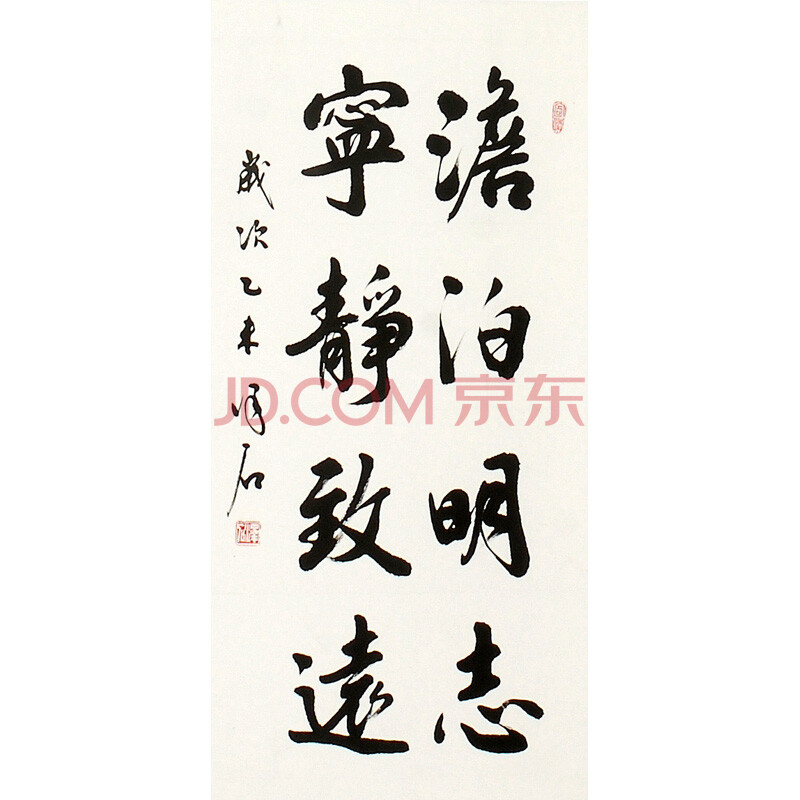 澹泊明志
寧靜致遠
歲次乙未
JD.COM 京东